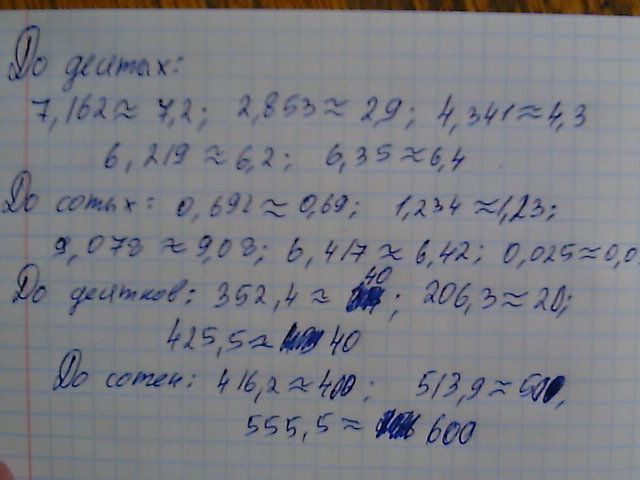 До десятых:
7,162 ≈ 7,2; 2,853 ≈ 2,9; 4,341 ≈ 4,3
6,219 ≈ 6,2; 6,35 ≈ 6,4
До сотых: 0,692 ≈ 0,69; 1,234 ≈ 1,23;
9,078 ≈ 9,08; 6,417 ≈ 6,42; 0,025 ≈ 0,0
До десятков: 352,4 ≈ 40; 206,3 ≈ 20;
425,5 ≈ 40
До сотен: 416,2 ≈ 400; 513,9 ≈ 500,
555,5 ≈ 600